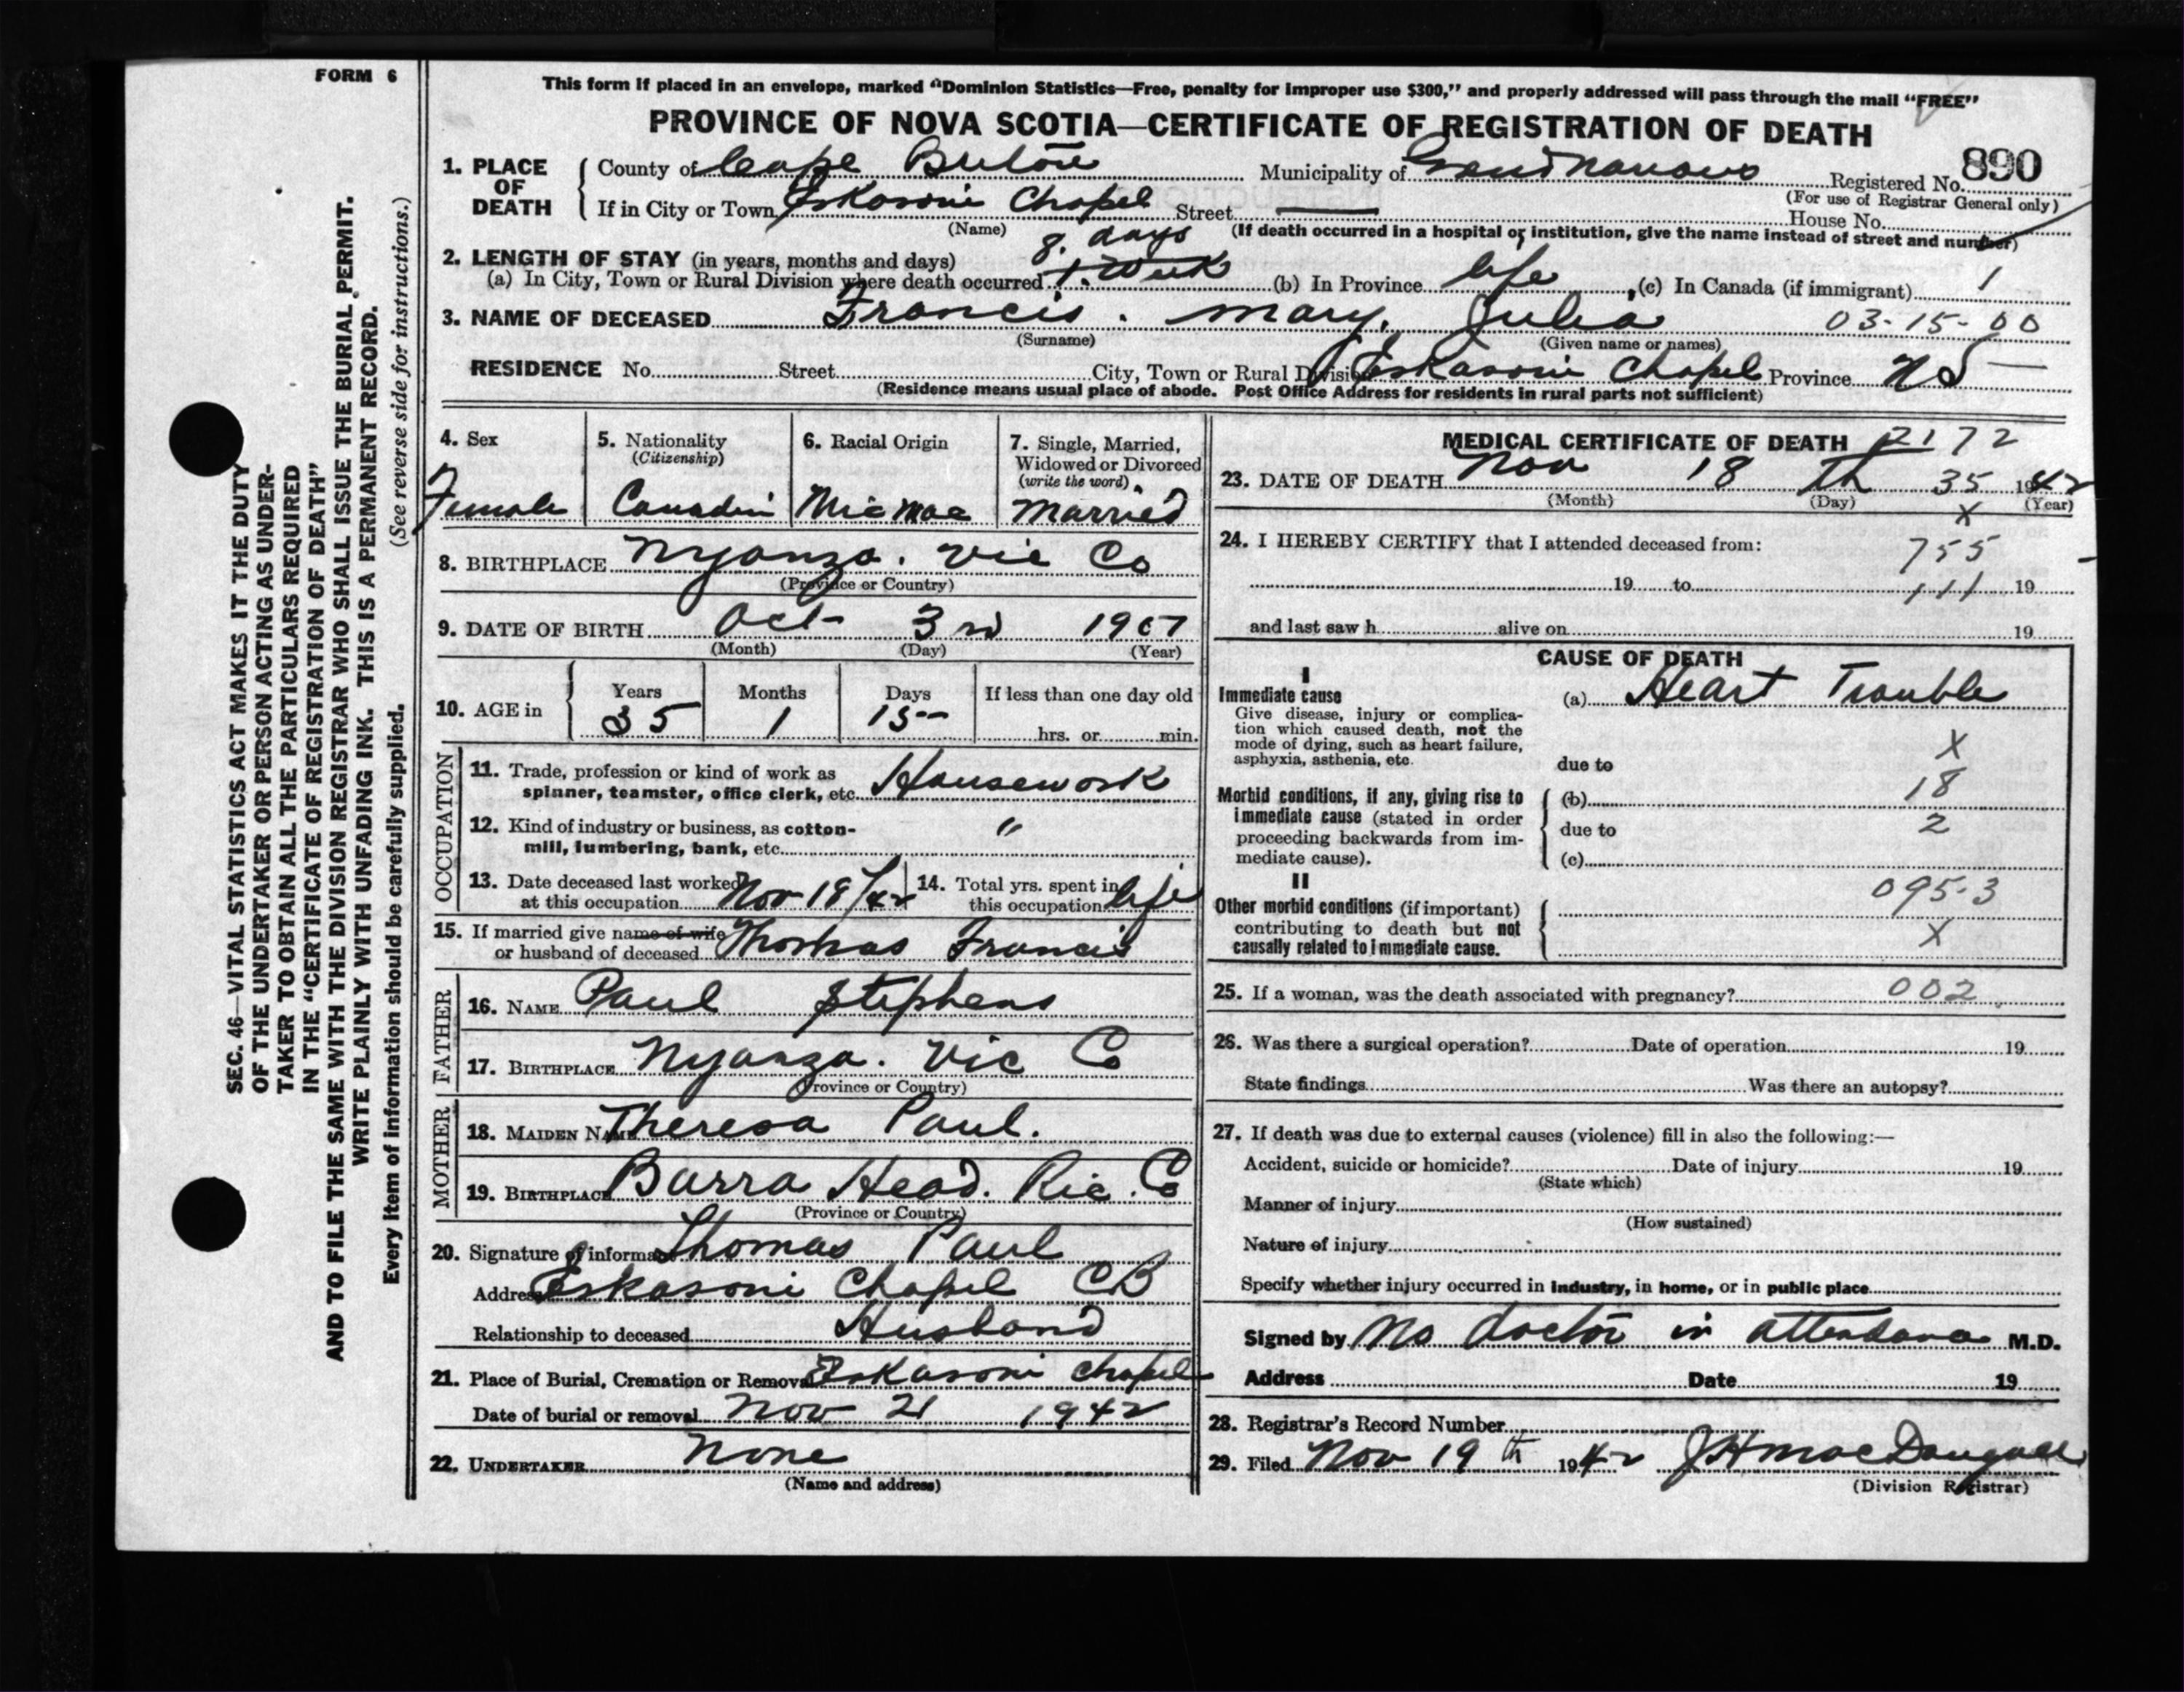 FORM 6
This form if placed in an envelope, marked "Dominion Statistics—Free, penalty for improper use $300," and properly addressed will pass through the mail "FREE"
PROVINCE OF NOVA SCOTIA—CERTIFICATE OF REGISTRATION OF DEATH
1. PLACE OF DEATH { County of Cape Breton Municipality of Grand Narrows Registered No. 890
(For use of Registrar General only)
If in City or Town Eskasoni Chapel Street — House No.
(Name) (If death occurred in a hospital or institution, give the name instead of street and number)
2. LENGTH OF STAY (in years, months and days) 8. days
(a) In City, Town or Rural Division where death occurred 1. Week (b) In Province life, (c) In Canada (if immigrant) 1
3. NAME OF DECEASED Francis. Mary, Julia 03-15-00
(Surname) (Given name or names)
RESIDENCE No. Street City, Town or Rural Division Eskasoni Chapel Province N S
(Residence means usual place of abode. Post Office Address for residents in rural parts not sufficient)
4. Sex Female
5. Nationality (Citizenship) Canadin
6. Racial Origin Mic Mac
7. Single, Married, Widowed or Divorced (write the word) Married
8. BIRTHPLACE Nyanza. Vic Co
(Province or Country)
9. DATE OF BIRTH Oct 3rd 1907
(Month) (Day) (Year)
10. AGE in Years 35 Months 1 Days 15 If less than one day old hrs. or min.
OCCUPATION
11. Trade, profession or kind of work as spinner, teamster, office clerk, etc. Housework
12. Kind of industry or business, as cotton-mill, lumbering, bank, etc. "
13. Date deceased last worked at this occupation Nov 18/42
14. Total yrs. spent in this occupation life
15. If married give name of wife or husband of deceased Thomas Francis
FATHER
16. NAME Paul Stephens
17. BIRTHPLACE Nyanza. Vic Co
(Province or Country)
MOTHER
18. MAIDEN NAME Theresa Paul.
19. BIRTHPLACE Barra Head. Ric. Co
(Province or Country)
20. Signature of informant Thomas Paul
Address Eskasoni Chapel CB
Relationship to deceased Husband
21. Place of Burial, Cremation or Removal Eskasoni Chapel
Date of burial or removal Nov 21 1942
22. UNDERTAKER None
(Name and address)
MEDICAL CERTIFICATE OF DEATH 2172
23. DATE OF DEATH Nov 18 th 35 1942
(Month) (Day) (Year)
X
24. I HEREBY CERTIFY that I attended deceased from: 755
19 to 111 19
and last saw h alive on 19
CAUSE OF DEATH
I
Immediate cause (a) Heart Trouble
Give disease, injury or complication which caused death, not the mode of dying, such as heart failure, asphyxia, asthenia, etc.
X
due to
18
Morbid conditions, if any, giving rise to immediate cause (stated in order proceeding backwards from immediate cause). (b)
due to 2
(c)
II
095.3
Other morbid conditions (if important) contributing to death but not causally related to immediate cause.
X
25. If a woman, was the death associated with pregnancy? 002
26. Was there a surgical operation? Date of operation 19
State findings Was there an autopsy?
27. If death was due to external causes (violence) fill in also the following:—
Accident, suicide or homicide? Date of injury 19
(State which)
Manner of injury
(How sustained)
Nature of injury
Specify whether injury occurred in industry, in home, or in public place
Signed by No doctor in attendance M.D.
Address Date 19
28. Registrar's Record Number
29. Filed Nov 19 th 1942 J H MacDougall
(Division Registrar)
SEC. 46—VITAL STATISTICS ACT MAKES IT THE DUTY
OF THE UNDERTAKER OR PERSON ACTING AS UNDER-
TAKER TO OBTAIN ALL THE PARTICULARS REQUIRED
IN THE "CERTIFICATE OF REGISTRATION OF DEATH"
AND TO FILE THE SAME WITH THE DIVISION REGISTRAR WHO SHALL ISSUE THE BURIAL PERMIT.
WRITE PLAINLY WITH UNFADING INK. THIS IS A PERMANENT RECORD.
Every item of information should be carefully supplied. (See reverse side for instructions.)